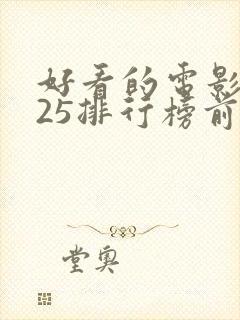 好看的电影
25排行榜前
堂奥